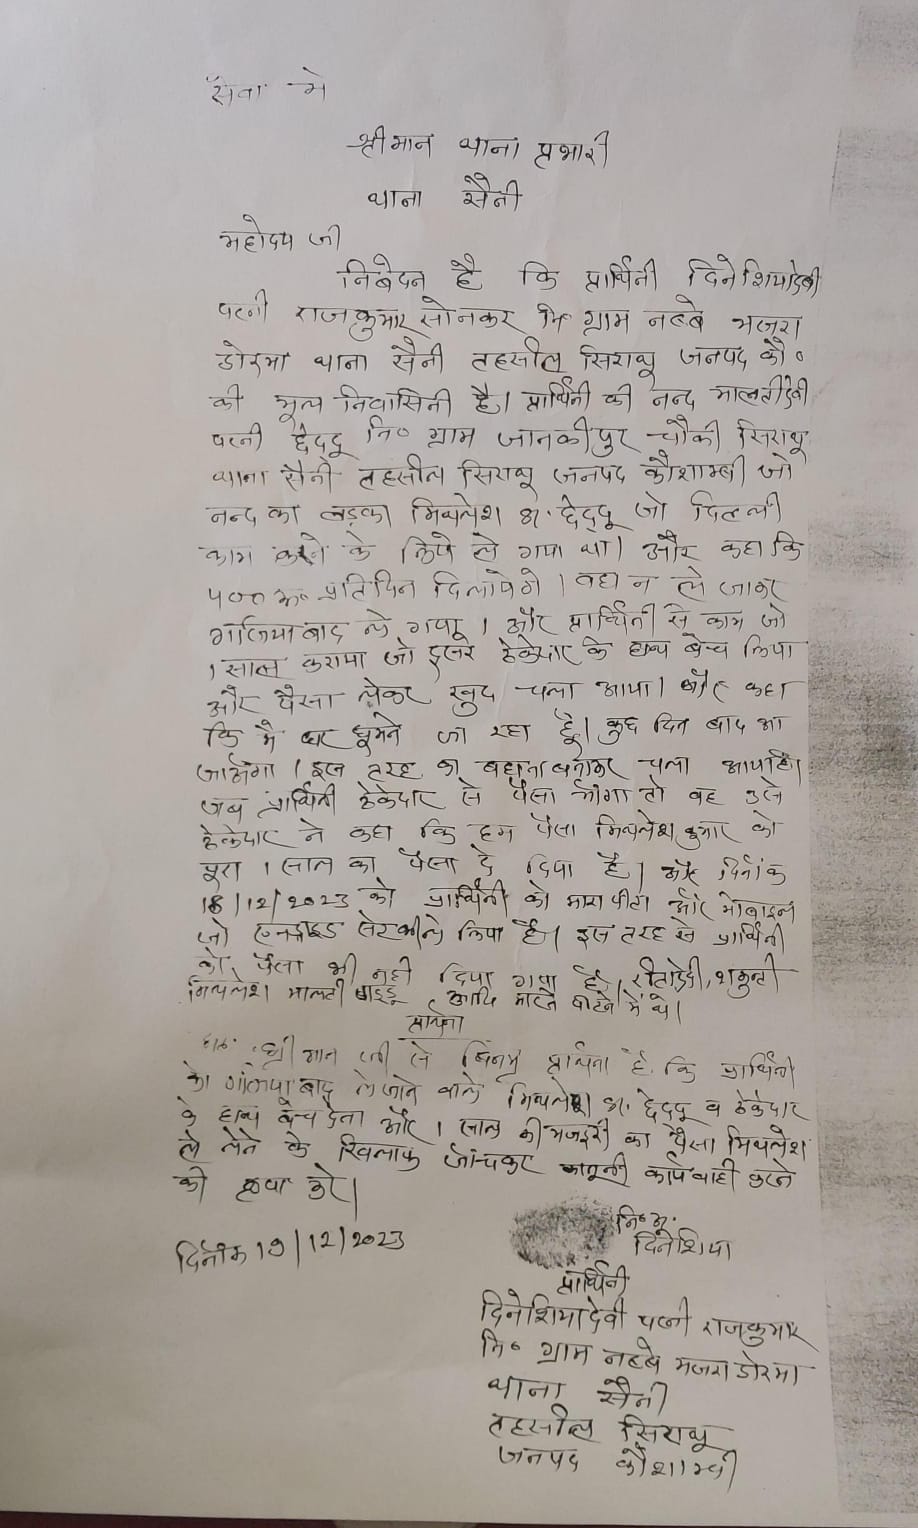 सेवा में
श्रीमान थाना प्रभारी
थाना सैनी
महोदय जी
निवेदन है कि प्रार्थिनी दिनेशियादेवी
पत्नी राजकुमार सोनकर नि० ग्राम नहबे मजरा
डोरमा थाना सैनी तहसील सिराथू जनपद कौ०
की मूल निवासिनी है। प्रार्थिनी की नन्द मालतीदेवी
पत्नी छेददू नि० ग्राम जानकीपुर चौकी सिराथू
थाना सैनी तहसील सिराथू जनपद कौशाम्बी जो
नन्द का लड़का मिथलेश s/o छेददू जो दिल्ली
काम करने के लिये ले गया था। और कहा कि
५०० रू० प्रतिदिन दिलायेगे। वहा न ले जाकर
गाजियाबाद ले गया। और प्रार्थिनी से काम जो
1 साल कराया जो दूसरे ठेकेदार के हाथ बेच लिया
और पैसा लेकर खुद चला आया। और कहा
कि मै घर घूमने जा रहा हूँ। कुछ दिन बाद आ
जाऊंगा। इस तरह का बहाना बनाकर चला आया है।
जब प्रार्थिनी ठेकेदार से पैसा मांगा तो वह उसे
ठेकेदार ने कहा कि हम पैसा मिथलेश कुमार को
पूरा 1 साल का पैसा दे दिया है। और दिनांक
18/12/2023 को प्रार्थिनी को मारा पीटा और मोबाइल
जो एनड्राइड लिया है। इस तरह से प्रार्थिनी
को पैसा भी नही दिया गया है, रीतादेवी,
मिथलेश मालती आदि मारने में थे।
प्रार्थना
अतः श्री मान जी से विनम्र प्रार्थना है कि प्रार्थिनी
को गाजियाबाद ले जाने वाले मिथलेश s/o छेददू व ठेकेदार
के हाथ बेच देना और 1 साल की मजदूरी का पैसा मिथलेश
ले लेने के खिलाफ जाँचकर कानूनी कार्यवाही करने
की कृपा करे।
दिनांक 19/12/2023
नि० अ०
दिनेशिया
प्रार्थिनी
दिनेशियादेवी पत्नी राजकुमार
नि० ग्राम नहबे मजरा डोरमा
थाना सैनी
तहसील सिराथू
जनपद कौशाम्बी